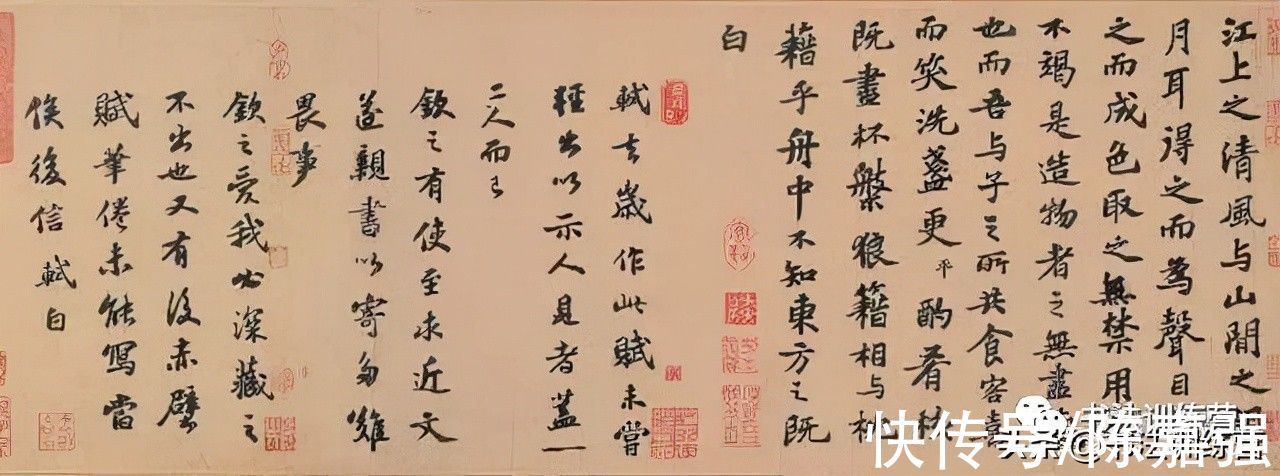 江上之清風与山間之
月耳得之而為聲目
之而成色取之無禁用
不竭是造物者之無盡
也而吾与子之所共食客喜
而笑洗盞更平酌肴核
既盡杯槃狼籍相与枕
藉乎舟中不知東方之既
白
軾去歲作此賦未嘗
輕出以示人見者蓋一
二人而已
欽之有使至求近文
遂親書以寄多難
畏事
欽之愛我必深藏之
不出也又有後赤壁
賦筆倦未能寫當
俟後信軾白
书法训练营
快传号/陈嘉强